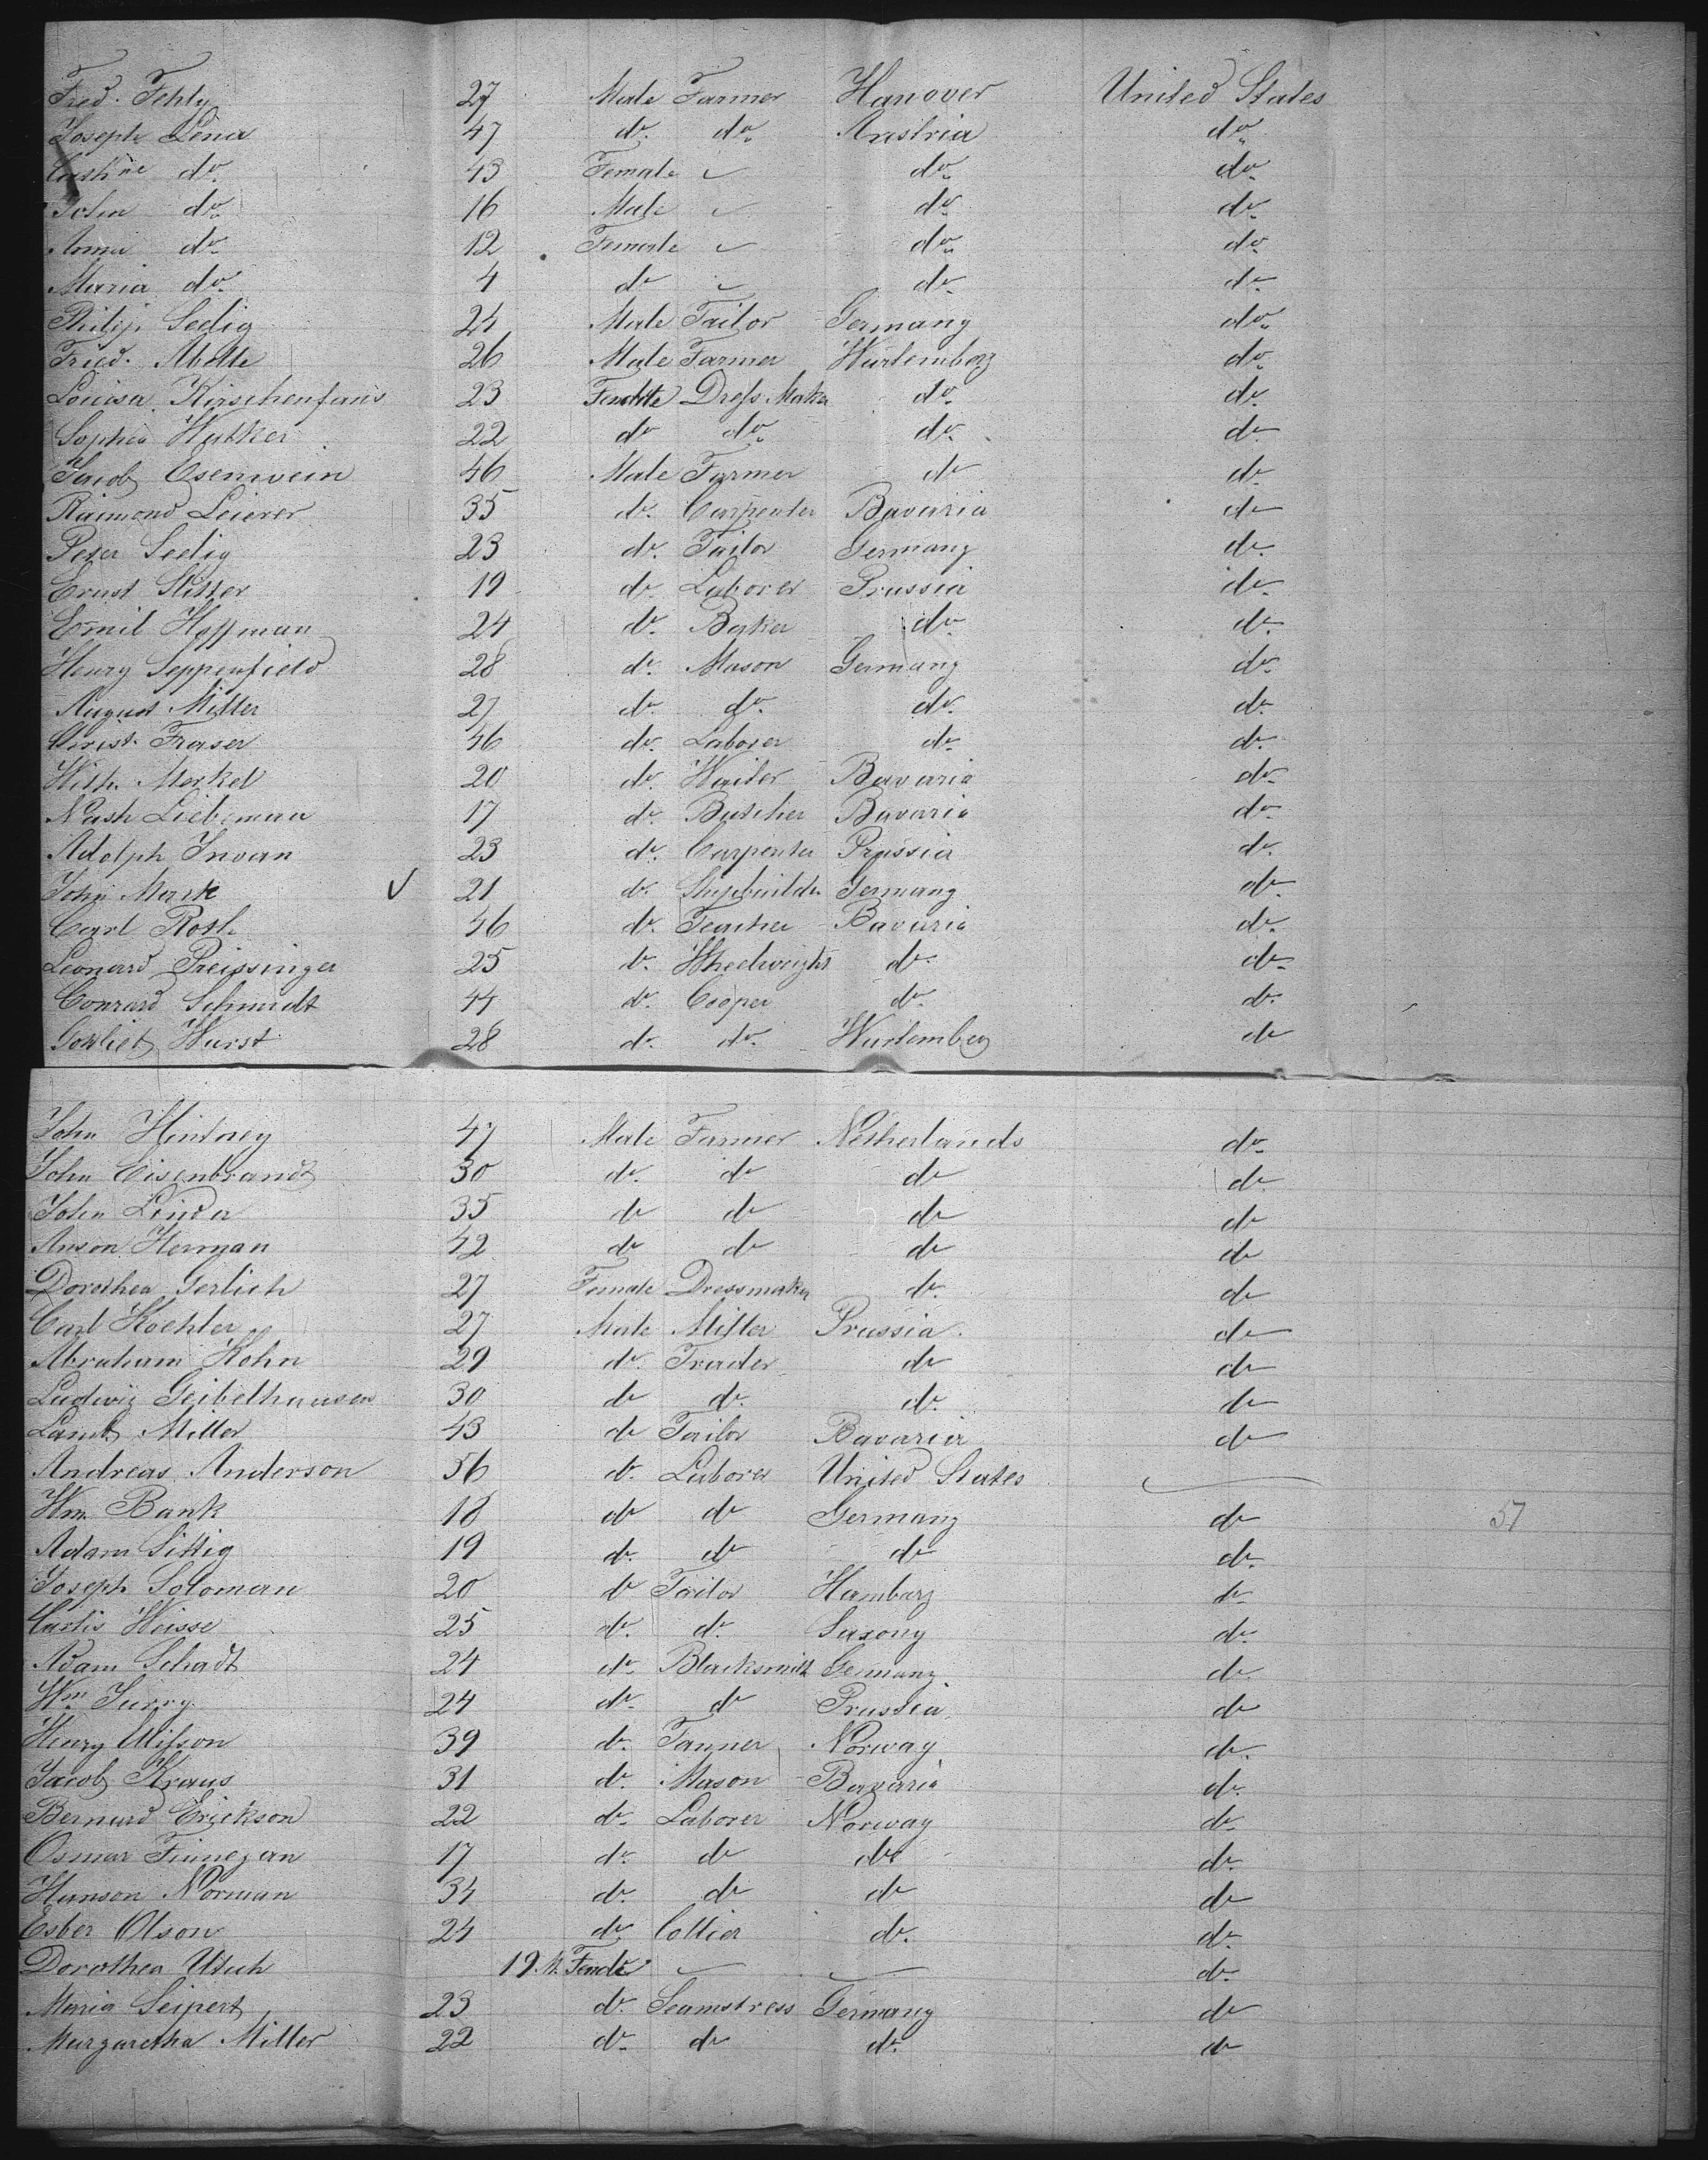 Fred. Fehly 27 Male Farmer Hanover United States
Joseph Lina 47 do. do. Austria do.
Cath ne do. 43 Female do. do.
John do. 16 Male do. do.
Anna do. 12 Female do. do.
Maria do. 4 do do. do.
Philip Seelig 24 Male Tailor Germany do.
Fried. Abelle 26 Male Farmer Wurtemberg do.
Louisa Kirschenfaus 23 Female Dress Maker do. do.
Sophia Hutker 22 do do. do. do.
Jacob Esenwein 46 Male Farmer do do.
Raimond Leierer 35 do. Carpenter Bavaria do
Peter Seelig 23 do. Tailor Germany do.
Ernst Sitter 19 do. Laborer Prussia do.
Emil Hoffman 24 do. Baker do. do.
Henry Seppenfield 28 do. Mason Germany do.
August Miller 27 do. do. do. do.
Christ. Fraser 46 do. Laborer do. do.
Wilh. Merkel 20 do. Waiter Bavaria do.
Nash Liebeman 17 do. Butcher Bavaria do.
Adolph Invan 23 do. Carpenter Prussia do.
John Mark √ 21 do. Shipbuilder Germany do.
Carl Roth 46 do. Teacher Bavaria do.
Leonard Preissinger 25 do. Wheelwright do. do.
Conrard Schmidt 44 do. Cooper do. do.
Gottlieb Wurst 28 do. do. Wurtemberg do
John Hindrey 47 Male Farmer Netherlands do.
John Eisenbrandt 30 do. do do do.
John Linda 35 do do do do
Anson Herman 42 do do do do
Dorothea Gerlich 27 Female Dressmaker do. do
Carl Koehler 27 Male Miller Prussia. do
Abraham Kohn 29 do. Trader do do
Ludwig Geibelhausen 30 do do. do. do
Lamb Miller 43 do Tailor Bavaria do
Andreas Anderson 56 do. Laborer United States
Wm. Bank 18 do do Germany do 57
Adam Sittig 19 do. do do do.
Joseph Soloman 20 do Tailor Hamburg do.
Curtis Weisse 25 do. do. Saxony do.
Adam Schadt 24 do. Blacksmith Germany do.
Wm Surry 24 do. do Prussia do
Henry Ulifson 39 do. Tanner Norway do.
Jacob Kraus 31 do. Mason Bavaria do.
Bernard Erickson 22 do. Laborer Norway do.
Osmar Finnegan 17 do. do do do.
Hanson Norman 34 do. do do do
Esber Olson 24 do. Collier do. do.
Dorothea Utech 19. M. Female do.
Maria Seipert 23 do. Seamstress Germany do
Margaretha Miller 22 do. do do. do